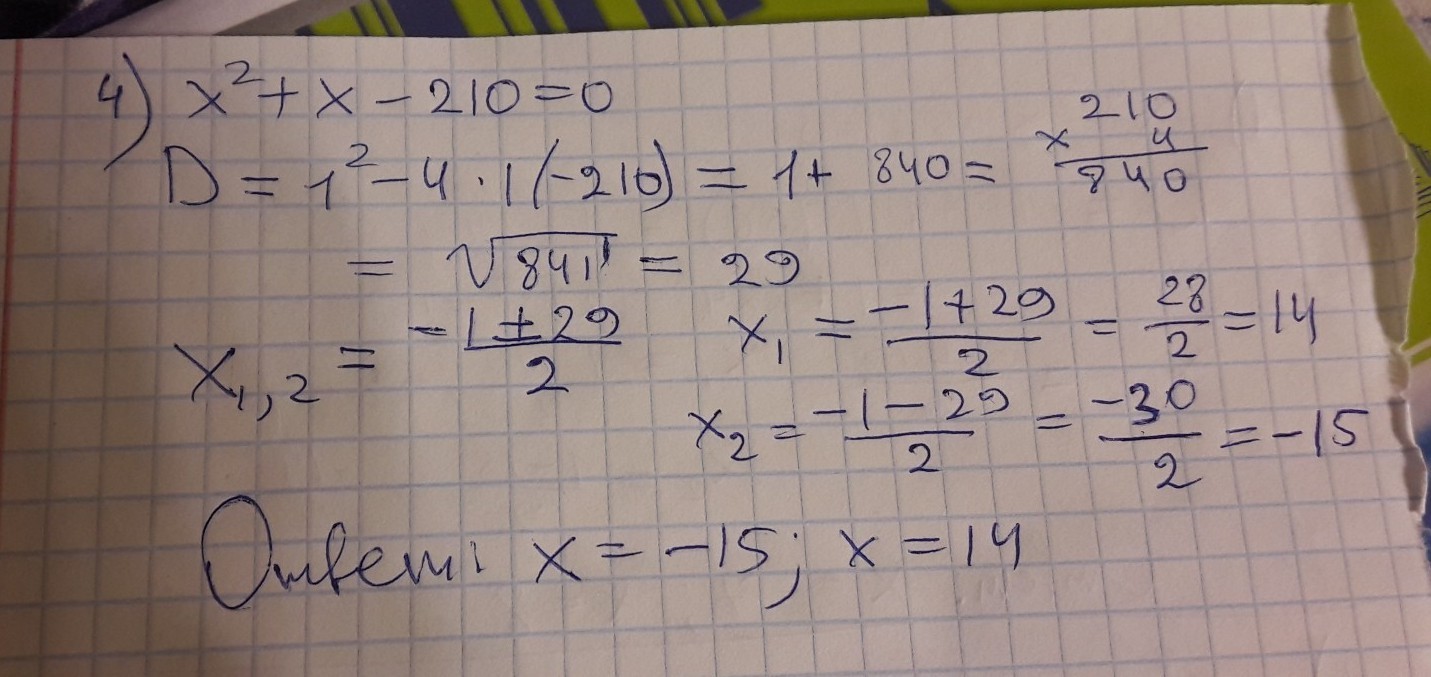 4) x² + x - 210 = 0
D = 1² - 4 · 1(-210) = 1 + 840 =
210
× 4
840
= √841 = 29
x₁,₂ = (-1 ± 29)/2
x₁ = (-1 + 29)/2 = 28/2 = 14
x₂ = (-1 - 29)/2 = -30/2 = -15
Ответ: x = -15; x = 14